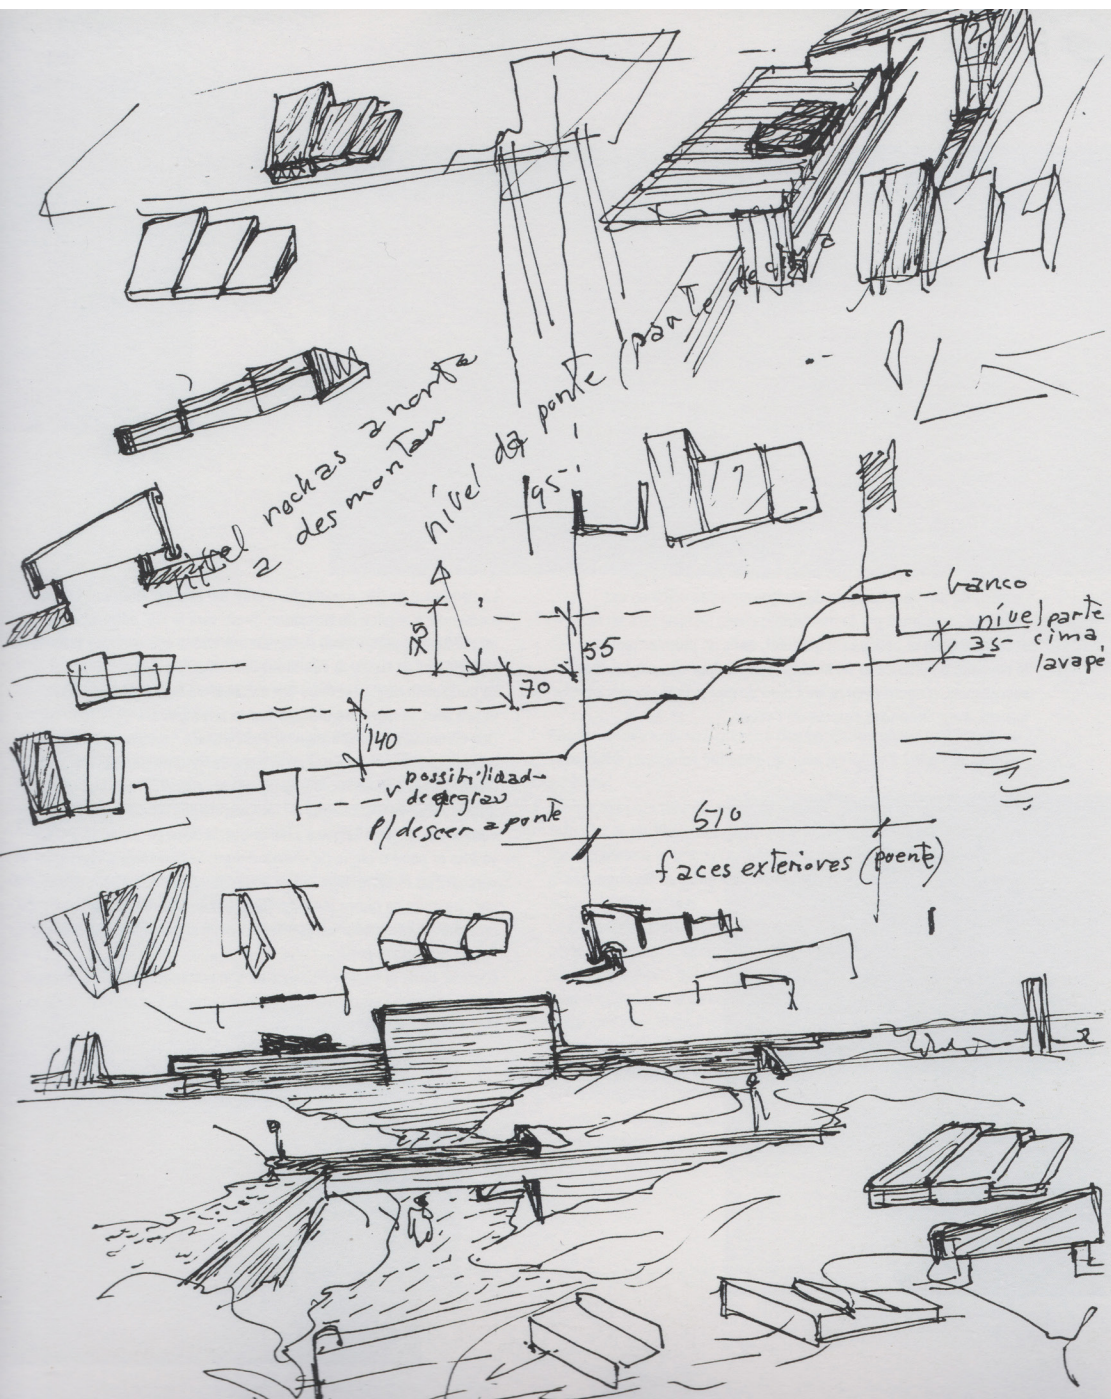 nível rochas a norte
a desmontar
nível da ponte (parte de cima
95
banco
nível parte
cima
lavapé
35
75
55
70
140
possibilidad-
de degrau
p/descer a ponte
510
faces exteriores (poente)